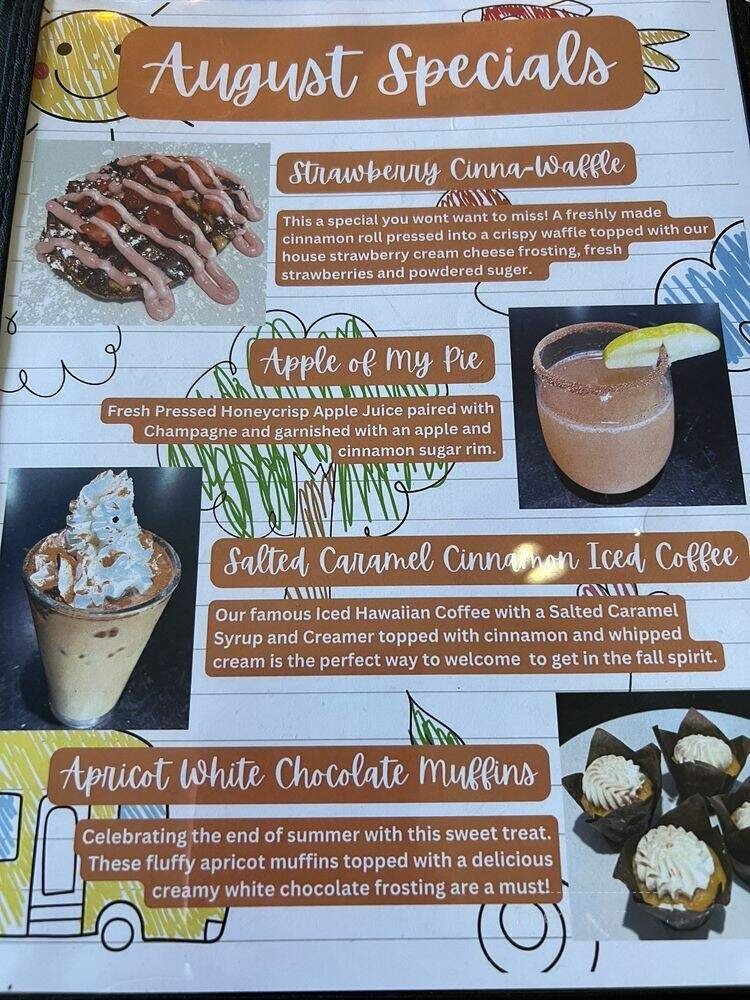 August Specials
Strawberry Cinna-Waffle
This a special you wont want to miss! A freshly made
cinnamon roll pressed into a crispy waffle topped with our
house strawberry cream cheese frosting, fresh
strawberries and powdered suger.
Apple of My Pie
Fresh Pressed Honeycrisp Apple Juice paired with
Champagne and garnished with an apple and
cinnamon sugar rim.
Salted Caramel Cinnamon Iced Coffee
Our famous Iced Hawaiian Coffee with a Salted Caramel
Syrup and Creamer topped with cinnamon and whipped
cream is the perfect way to welcome to get in the fall spirit.
Apricot White Chocolate Muffins
Celebrating the end of summer with this sweet treat.
These fluffy apricot muffins topped with a delicious
creamy white chocolate frosting are a must!